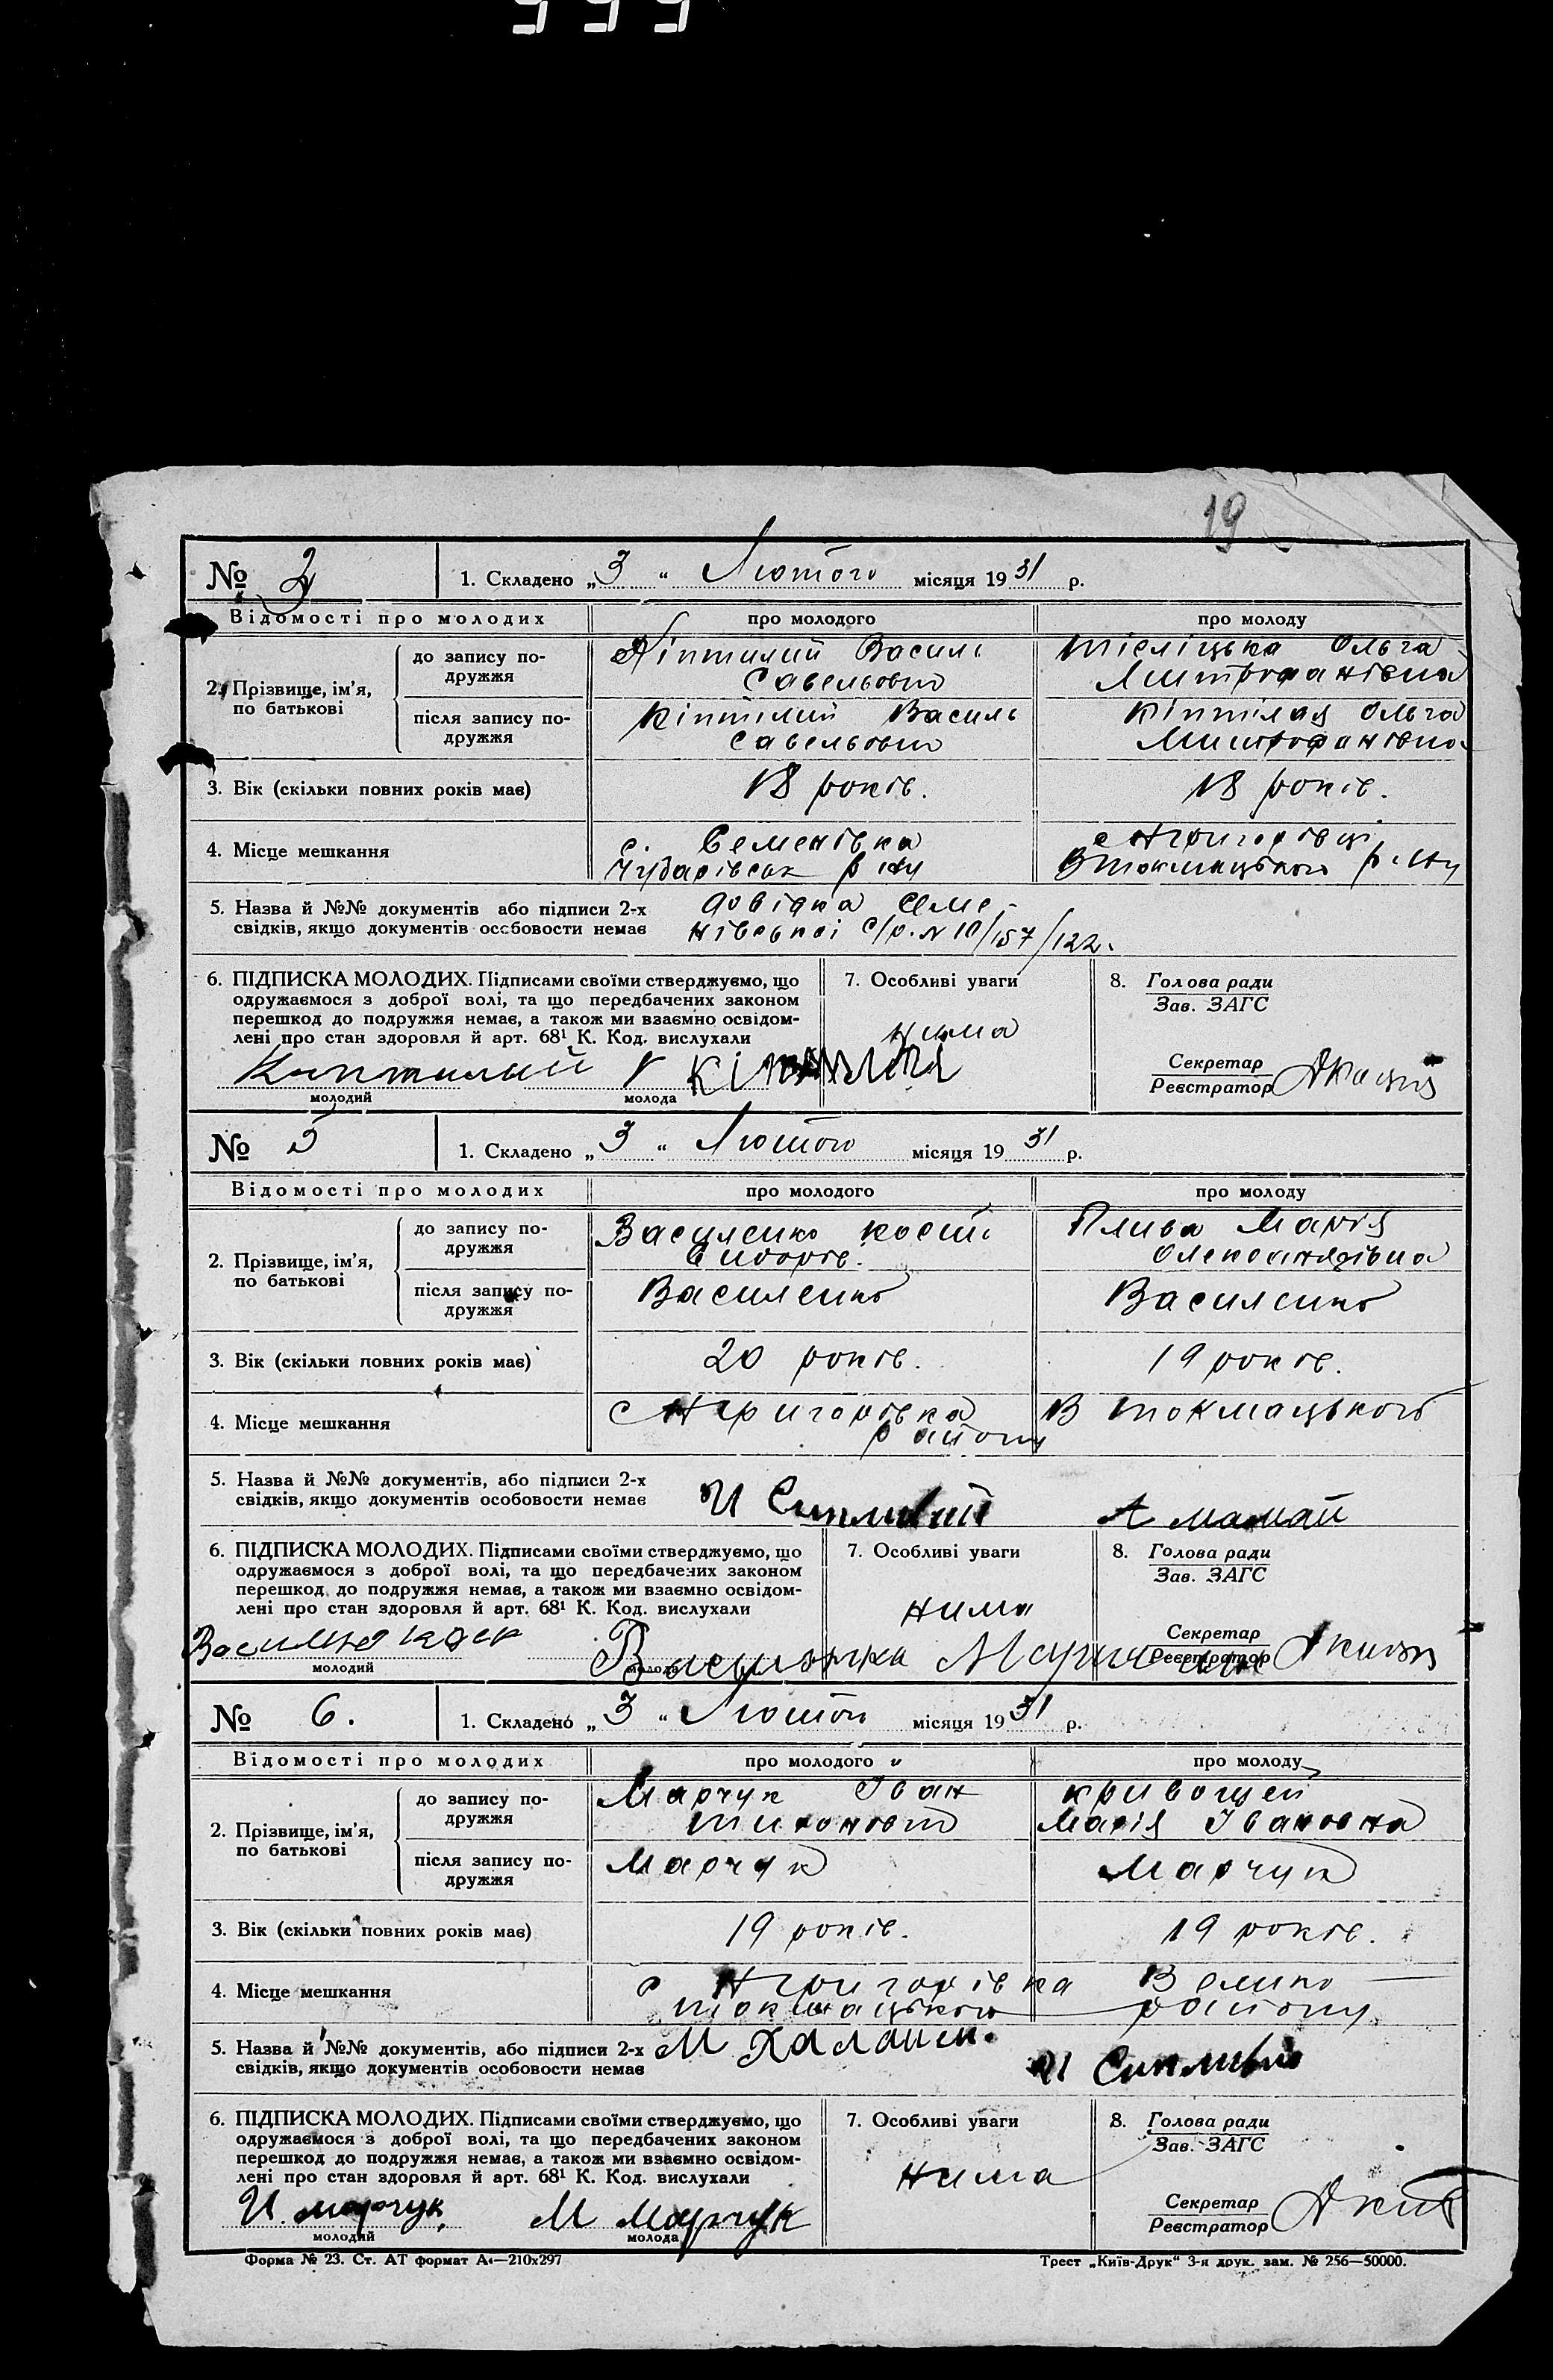 999
19
№ 2 1. Складено „ 3 “ Лютого місяця 19 31 р.
Відомості про молодих про молодого про молоду
2. Прізвище, ім’я, по батькові
до запису по-
дружжя
Василь
Савельович
Ольга
Митрофанівна
після запису по-
дружжя
Кіптілий Василь
Савельович
Кіптілая Ольга
Митрофанівна
3. Вік (скільки повних років має) 18 років. 18 років.
4. Місце мешкання
с. Семенівка
Чубарівськ р-ну
Втокмацького р-ну
5. Назва й №№ документів або підписи 2-х
свідків, якщо документів особовости немає
довідка Семе-
нівської с/р. N 10/157/122.
6. ПІДПИСКА МОЛОДИХ. Підписами своїми стверджуємо, що
одружаємося з доброї волі, та що передбачених законом
перешкод до подружжя немає, а також ми взаємно освідом-
лені про стан здоровля й арт. 68¹ К. Код. вислухали
молодий молода
7. Особливі уваги
нима
8. Голова ради
Зав. ЗАГС
Секретар
Реєстратор
№ 5 1. Складено „ 3 “ Лютого місяця 19 31 р.
Відомості про молодих про молодого про молоду
2. Прізвище, ім’я,
по батькові
до запису по-
дружжя
Василенко Кость
Сидорів.
Плива Марія
Олександрівна
після запису по-
дружжя
Василенко Василенко
3. Вік (скільки повних років має) 20 років. 19 років.
4. Місце мешкання
В токмацького
району
5. Назва й №№ документів, або підписи 2-х
свідків, якщо документів особовости немає
И Сипливий А мамай
6. ПІДПИСКА МОЛОДИХ. Підписами своїми стверджуємо, що
одружаємося з доброї волі, та що передбачених законом
перешкод до подружжя немає, а також ми взаємно освідом-
лені про стан здоровля й арт. 68¹ К. Код. вислухали
молодий молода
7. Особливі уваги
нима
8. Голова ради
Зав. ЗАГС
Секретар
Реєстратор
№ 6. 1. Складено „ 3 “ Лютого місяця 19 31 р.
Відомості про молодих про молодого про молоду
2. Прізвище, ім’я,
по батькові
до запису по-
дружжя
Марчук Іван
Тихонович
Кривошей
Марія Івановна
після запису по-
дружжя
Марчук Марчук
3. Вік (скільки повних років має) 19 років. 19 років.
4. Місце мешкання
Велико
токмацького району
5. Назва й №№ документів, або підписи 2-х
свідків, якщо документів особовости немає
И Сипливий
6. ПІДПИСКА МОЛОДИХ. Підписами своїми стверджуємо, що
одружаємося з доброї волі, та що передбачених законом
перешкод до подружжя немає, а також ми взаємно освідом-
лені про стан здоровля й арт. 68¹ К. Код. вислухали
И. марчук М Марчук
молодий молода
7. Особливі уваги
нима
8. Голова ради
Зав. ЗАГС
Секретар
Реєстратор
Форма № 23. Ст. АТ формат А₄—210х297 Трест „Київ-Друк“ 3-я друк. зам. № 256—50000.